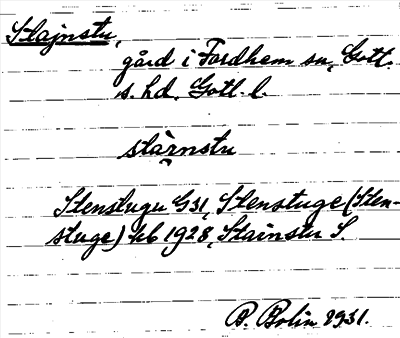 Stajnstu,
gård i Fardhem sn, Gotl.
s. hd. Gotl. l.
stàr̯nstu
Stenstugu G31, Stenstuge (Sten-
stuge) kb 1928, Stainstu S.
B. Bolin 1931.